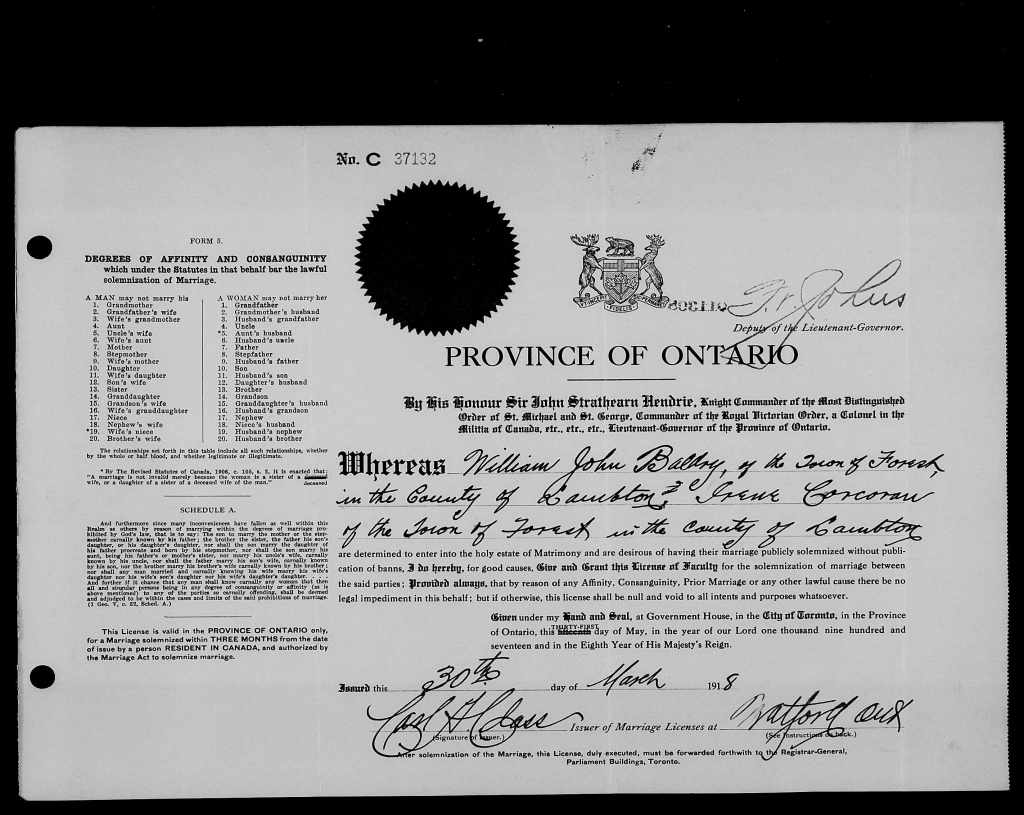 No. C 37132
FORM 5.
DEGREES OF AFFINITY AND CONSANGUINITY
which under the Statutes in that behalf bar the lawful
solemnization of Marriage.
A MAN may not marry his
1. Grandmother
2. Grandfather's wife
3. Wife's grandmother
4. Aunt
5. Uncle's wife
6. Wife's aunt
7. Mother
8. Stepmother
9. Wife's mother
10. Daughter
11. Wife's daughter
12. Son's wife
13. Sister
14. Granddaughter
15. Grandson's wife
16. Wife's granddaughter
17. Niece
18. Nephew's wife
*19. Wife's niece
20. Brother's wife
A WOMAN may not marry her
1. Grandfather
2. Grandmother's husband
3. Husband's grandfather
4. Uncle
*5. Aunt's husband
6. Husband's uncle
7. Father
8. Stepfather
9. Husband's father
10. Son
11. Husband's son
12. Daughter's husband
13. Brother
14. Grandson
15. Granddaughter's husband
16. Husband's grandson
17. Nephew
18. Niece's husband
19. Husband's nephew
20. Husband's brother
The relationships set forth in this table include all such relationships, whether
by the whole or half blood, and whether legitimate or illegitimate.
* By The Revised Statutes of Canada, 1906, c. 105, s. 2, it is enacted that:
"A marriage is not invalid merely because the woman is a sister of a deceased
wife, or a daughter of a sister of a deceased wife of the man." deceased
SCHEDULE A.
And furthermore since many inconveniences have fallen as well within this
Realm as others by reason of marrying within the degrees of marriage pro-
hibited by God's law, that is to say: The son to marry the mother or the step-
mother carnally known by his father; the brother the sister, the father his son's
daughter, or his daughter's daughter, nor shall the son marry the daughter of
his father procreate and born by his stepmother, nor shall the son marry his
aunt, being his father's or mother's sister, nor marry his uncle's wife, carnally
known by his uncle, nor shall the father marry his son's wife, carnally known
by his son, nor the brother marry his brother's wife carnally known by his brother;
nor shall any man married and carnally knowing his wife marry his wife's
daughter nor his wife's son's daughter nor his wife's daughter's daughter. . . .
And further if it chance that any man shall know carnally any woman that then
all and singular persons being in any degree of consanguinity or affinity (as is
above mentioned) to any of the parties so carnally offending, shall be deemed
and adjudged to be within the cases and limits of the said prohibitions of marriage.
(1 Geo. V, c. 32, Sched. A.)
This License is valid in the PROVINCE OF ONTARIO only,
for a Marriage solemnized within THREE MONTHS from the date
of issue by a person RESIDENT IN CANADA, and authorized by
the Marriage Act to solemnize marriage.
FIDELIS
011308
Deputy of the Lieutenant-Governor.
PROVINCE OF ONTARIO
By His Honour Sir John Strathearn Hendrie, Knight Commander of the Most Distinguished
Order of St. Michael and St. George, Commander of the Royal Victorian Order, a Colonel in the
Militia of Canada, etc., etc., etc., Lieutenant-Governor of the Province of Ontario.
Whereas William John Baldry, of the Town of Forest,
in the County of Lambton, & Irene Corcoran
of the Town of Forest in the County of Lambton
are determined to enter into the holy estate of Matrimony and are desirous of having their marriage publicly solemnized without publi-
cation of banns, I do hereby, for good causes, Give and Grant this License of Faculty for the solemnization of marriage between
the said parties; Provided always, that by reason of any Affinity, Consanguinity, Prior Marriage or any other lawful cause there be no
legal impediment in this behalf; but if otherwise, this license shall be null and void to all intents and purposes whatsoever.
Given under my Hand and Seal, at Government House, in the City of Toronto, in the Province
of Ontario, this THIRTY-FIRST fifteenth day of May, in the year of our Lord one thousand nine hundred and
seventeen and in the Eighth Year of His Majesty's Reign.
Issued this 30th day of March 1918
Carl A. Class Issuer of Marriage Licenses at Watford Ont
(Signature of issuer.) (See instructions on back.)
After solemnization of the Marriage, this License, duly executed, must be forwarded forthwith to the Registrar-General,
Parliament Buildings, Toronto.